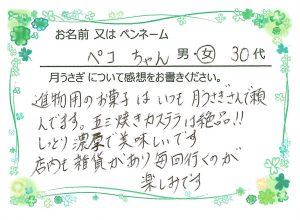 お名前 又は ペンネーム
ペコ ちゃん 男・女 30代
月うさぎ について感想をお書きください。
進物用のお菓子は いつも 月うさぎさんで頼
んでます。五三焼きカステラは絶品!!
しっとり 濃厚で美味しいです
店内も 雑貨があり 毎回行くのが
楽しみです